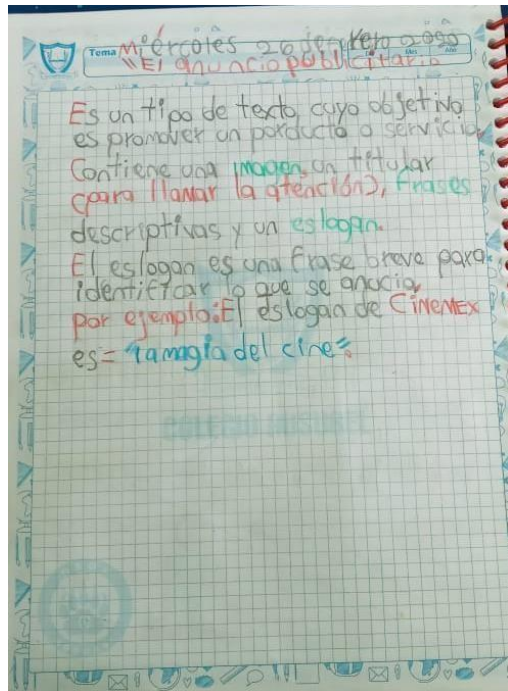 Tema Miércoles 26 de enero
"El anuncio publicitario
Es un tipo de texto, cuyo objetivo
es promover un porducto o servicio
Contiene una imagen, un titular
(para llamar la atención), frases
descriptivas y un eslogan.
El eslogan es una frase breve para
identificar lo que se anucia,
por ejemplo: El eslogan de CINEMEX
es= "la magia del cine".